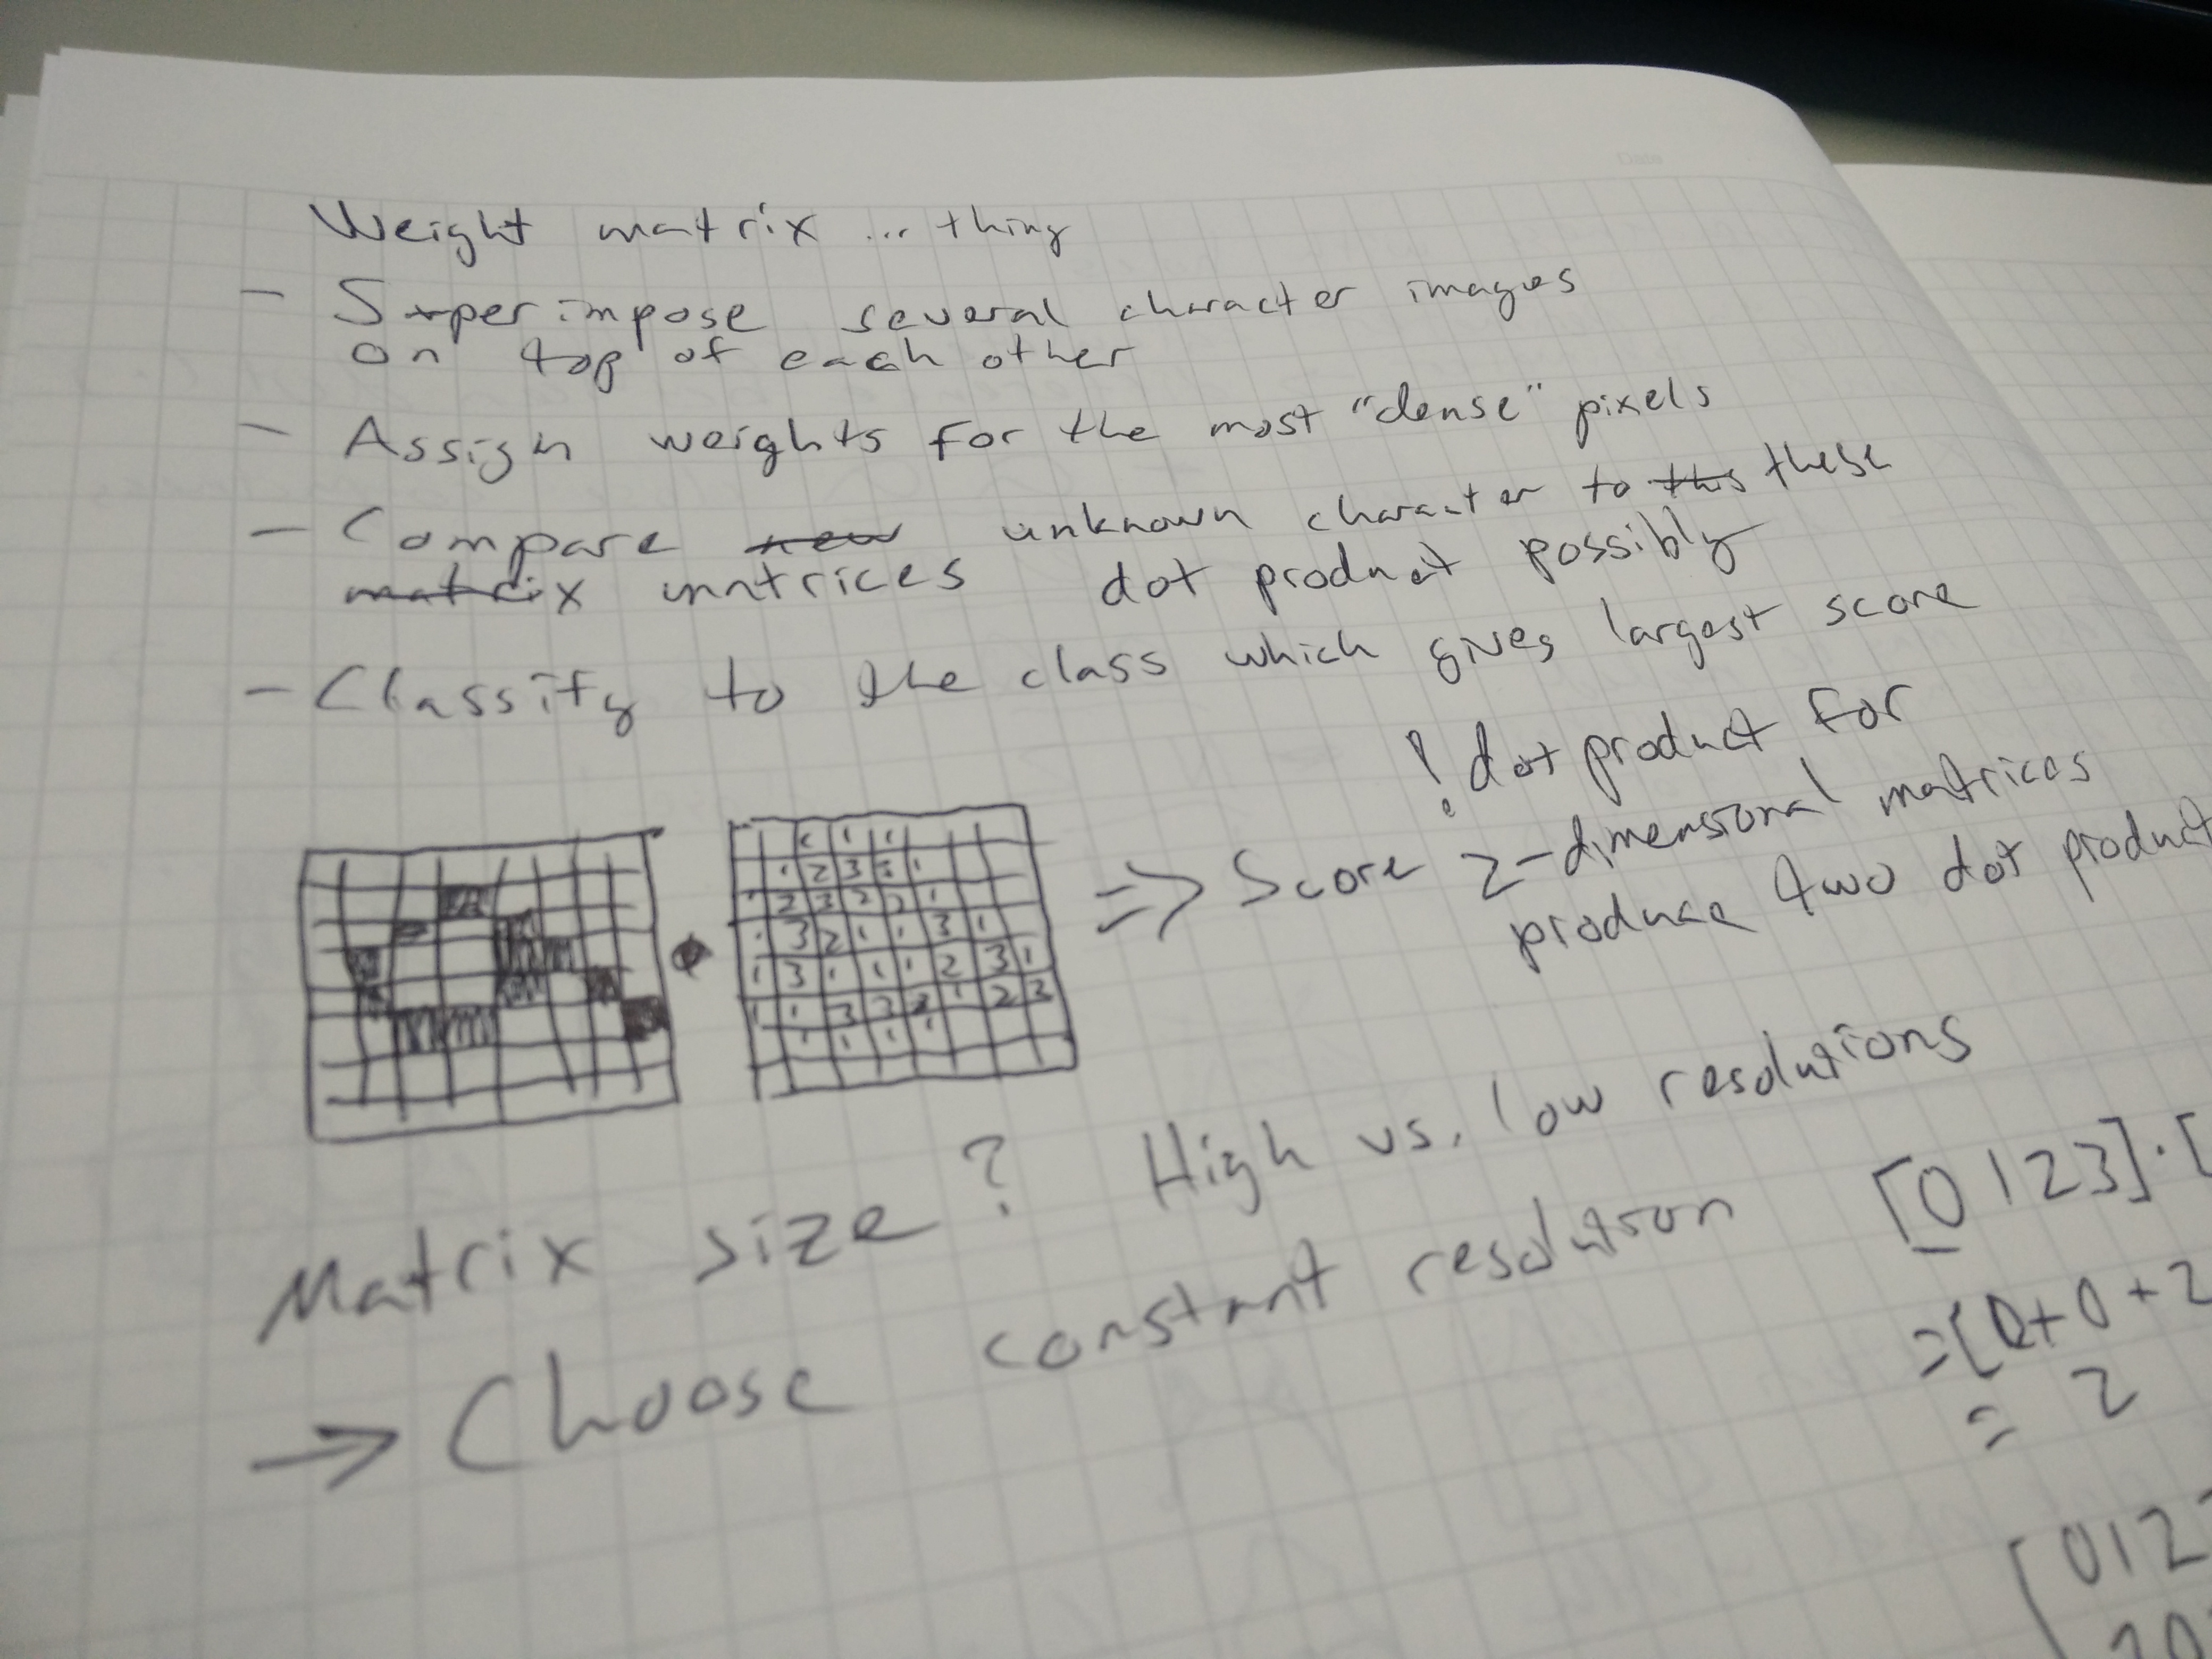 Date
Weight matrix ... thing
- Superimpose several character images
on top of each other
- Assign weights for the most "dense" pixels
- Compare new unknown character to this these
matrix matrices dot product possibly
- Classify to the class which gives largest score
! dot product for
2-dimensional matrices
produce two dot product
1 1
1 2 3 3 1
1 2 3 2 2 1
1 3 2 1 1 3 1
1 3 1 1 1 2 3 1
1 1 3 3 2 1 2 3
1 1 1 1
=> Score
Matrix size? High vs. low resolutions
→ Choose constant resolution
[0 1 2 3] · [
= [0+0+2
= 2
[ 0 1 2